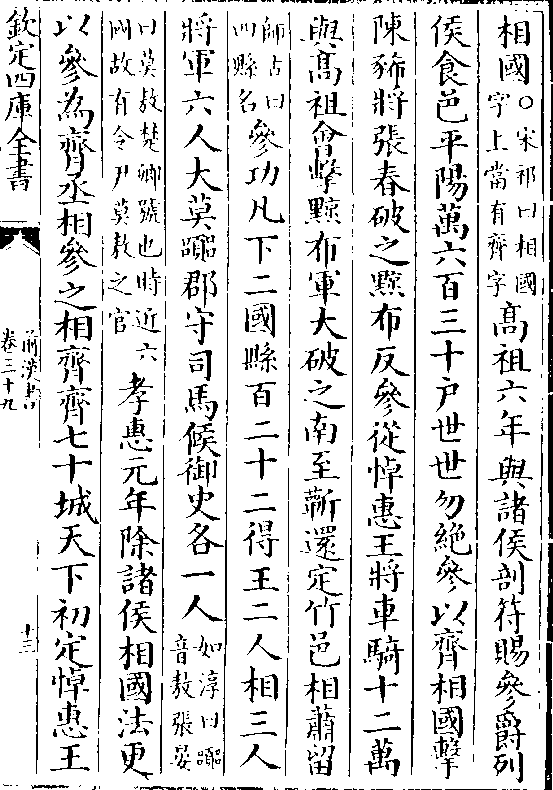 相國○宋祁曰相國字上當有齊字髙祖六年與諸侯剖符賜參爵列
侯食邑平陽萬六百三十户世世勿絶參以齊相國擊
陳豨將張春破之黥布反參從悼惠王將車騎十二萬
與髙祖會擊黥布軍大破之南至蘄還定竹邑相蕭留
師古曰四縣名參功凡下二國縣百二十二得王二人相三人
將軍六人大莫嚻郡守司馬候御史各一人如淳曰嚻音敖張晏
曰莫敖楚卿號也時近六國故有令尹莫敖之官孝惠元年除諸侯相國法更
以參為齊丞相參之相齊齊七十城天下初定悼惠王
欽定四庫全書
前漢書
卷三十九
十三